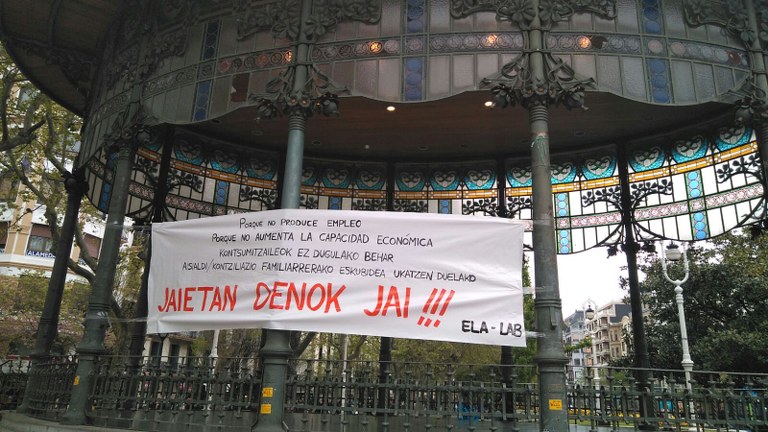 PORQUE NO PRODUCE EMPLEO
PORQUE NO AUMENTA LA CAPACIDAD ECONÓMICA
KONTSUMITZAILEOK EZ DUGULAKO BEHAR
ASIALDI/KONTZILIAZIO FAMILIARRERAKO ESKUBIDEA UKATZEN DUELAKO
JAIETAN DENOK JAI !!!
ELA - LAB
ALAMEDA